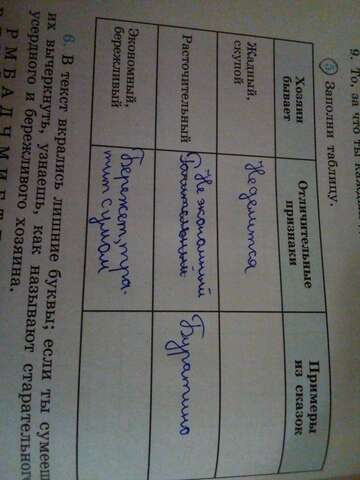 9. То, за что ты
5 Заполни таблицу.
Хозяин
бывает
Отличительные
признаки
Примеры
из сказок
Жадный,
скупой
Не делится
Расточительный
Не экономный
Буратино
Экономный,
бережливый
Бережет, тра-
тит с умом
6. В текст вкрались лишние буквы; если ты сумееш
их вычеркнуть, узнаешь, как называют старательного
усердного и бережливого хозяина.
Р М Б А Д Ч М И Е Т